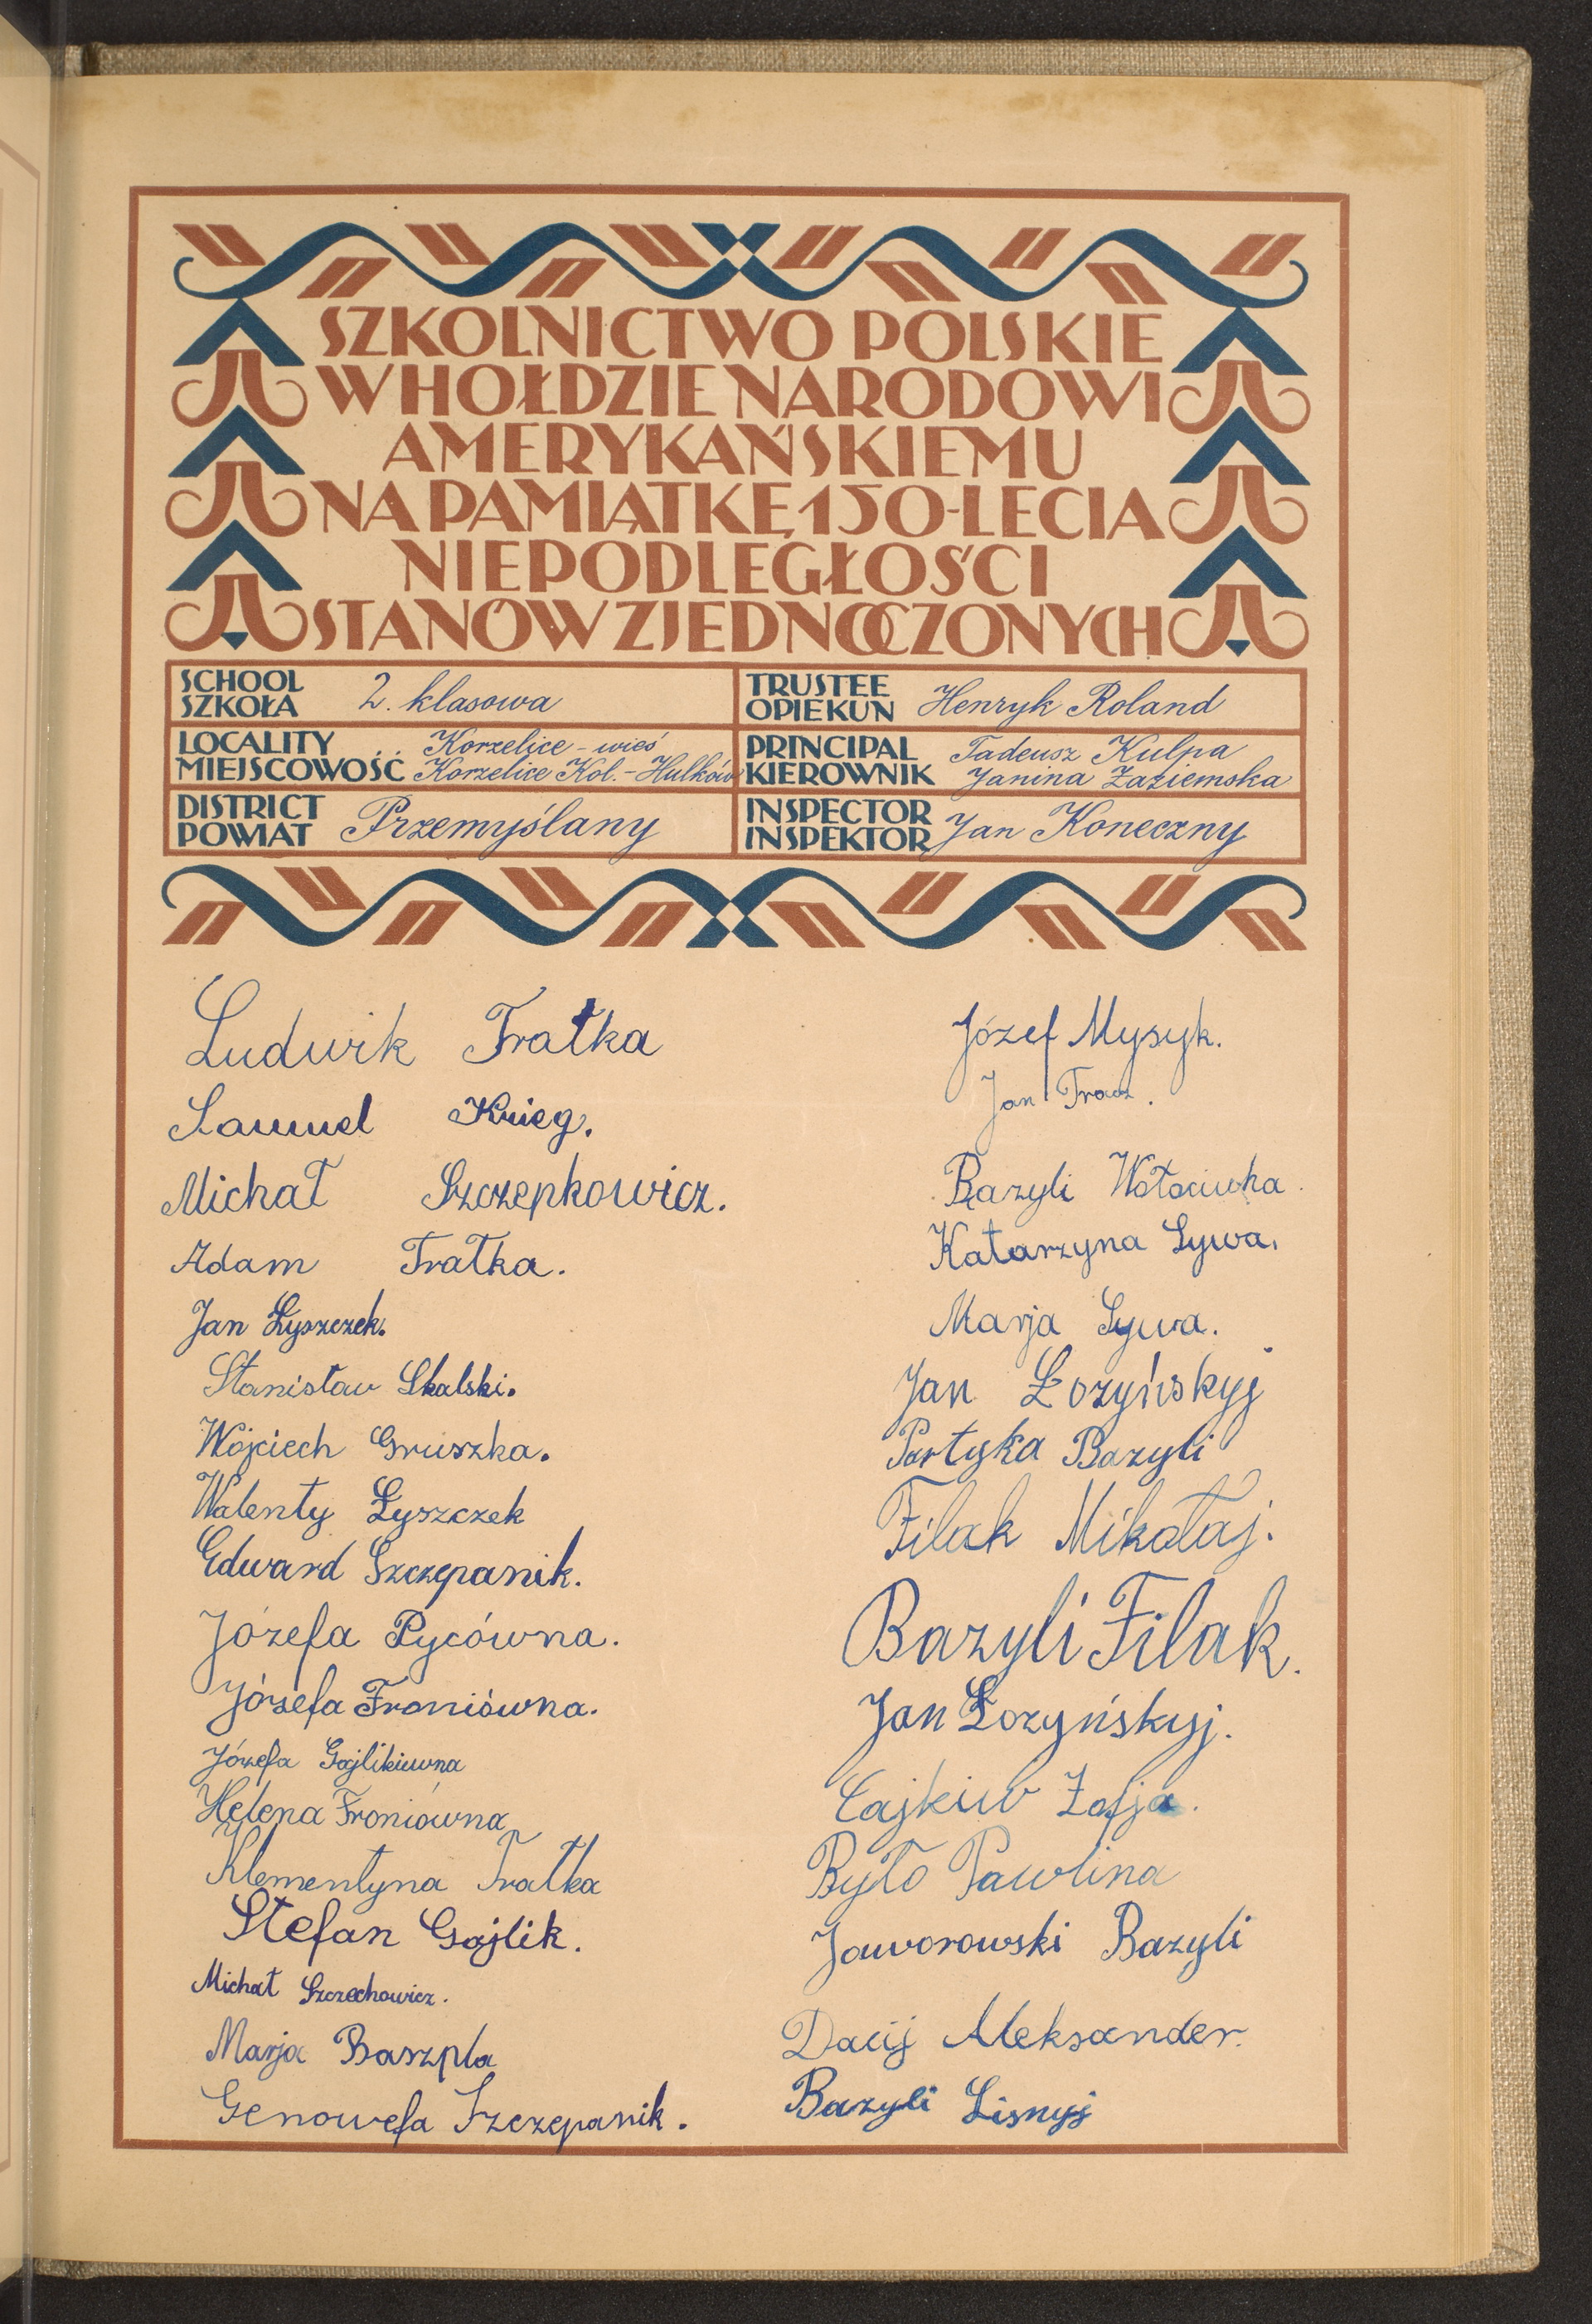 SZKOLNICTWO POLSKIE
W HOŁDZIE NARODOWI
AMERYKAŃSKIEMU
NA PAMIĄTKĘ 150-LECIA
NIEPODLEGŁOŚCI
STANÓW ZJEDNOCZONYCH
SCHOOL
SZKOŁA
2. klasowa
TRUSTEE
OPIEKUN
Henryk Roland
LOCALITY
MIEJSCOWOŚĆ
Korzelice - wieś
Korzelice Kol. - Hulków
PRINCIPAL
KIEROWNIK
Tadeusz Kulpa
Janina Zaziemska
DISTRICT
POWIAT
Przemyślany
INSPECTOR
INSPEKTOR
Jan Koneczny
Ludwik Trałka
Samuel Krieg.
Michał Szczepkowicz.
Adam Trałka.
Jan Łyszczek.
Stanisław Skalski.
Wojciech Gruszka.
Walenty Łyszczek
Edward Szczepanik.
Józefa Pycówna.
Józefa Froniówna.
Józefa Gajlikiewna
Helena Froniówna
Klementyna Trałka
Stefan Gajlik.
Michał Szczechowicz.
Marja Baszpla
Genowefa Szczepanik.
Józef Mysyk.
Jan Tracz.
Bazyli
Katarzyna Sywa.
Marja Sywa.
Jan Łozyńskyj
Partyka Bazyli
Filak Mikołaj.
Bazyli Filak.
Jan Łozyńskyj.
Cajkiw Zofja.
Było Pawlina
Jaworowski Bazyli
Dacij Aleksander.
Bazyli Lisnyj